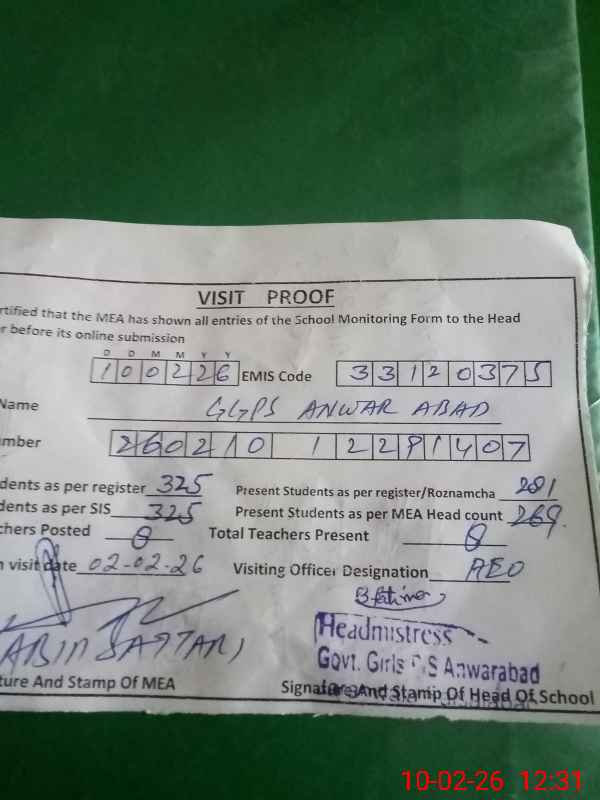 VISIT PROOF
rtified that the MEA has shown all entries of the School Monitoring Form to the Head
r before its online submission
D D M M Y Y
100226 EMIS Code 33120375
Name GGPS ANWAR ABAD
mber 260210 122
dents as per register 325 Present Students as per register/Roznamcha 281
dents as per SIS 325 Present Students as per MEA Head count 269
chers Posted 8 Total Teachers Present 8
n visit date 02-02-26 Visiting Officer Designation AEO
Headmistress
Govt. Girls P.S Anwarabad
ture And Stamp Of MEA Signature And Stamp Of Head Of School
10-02-26 12:31